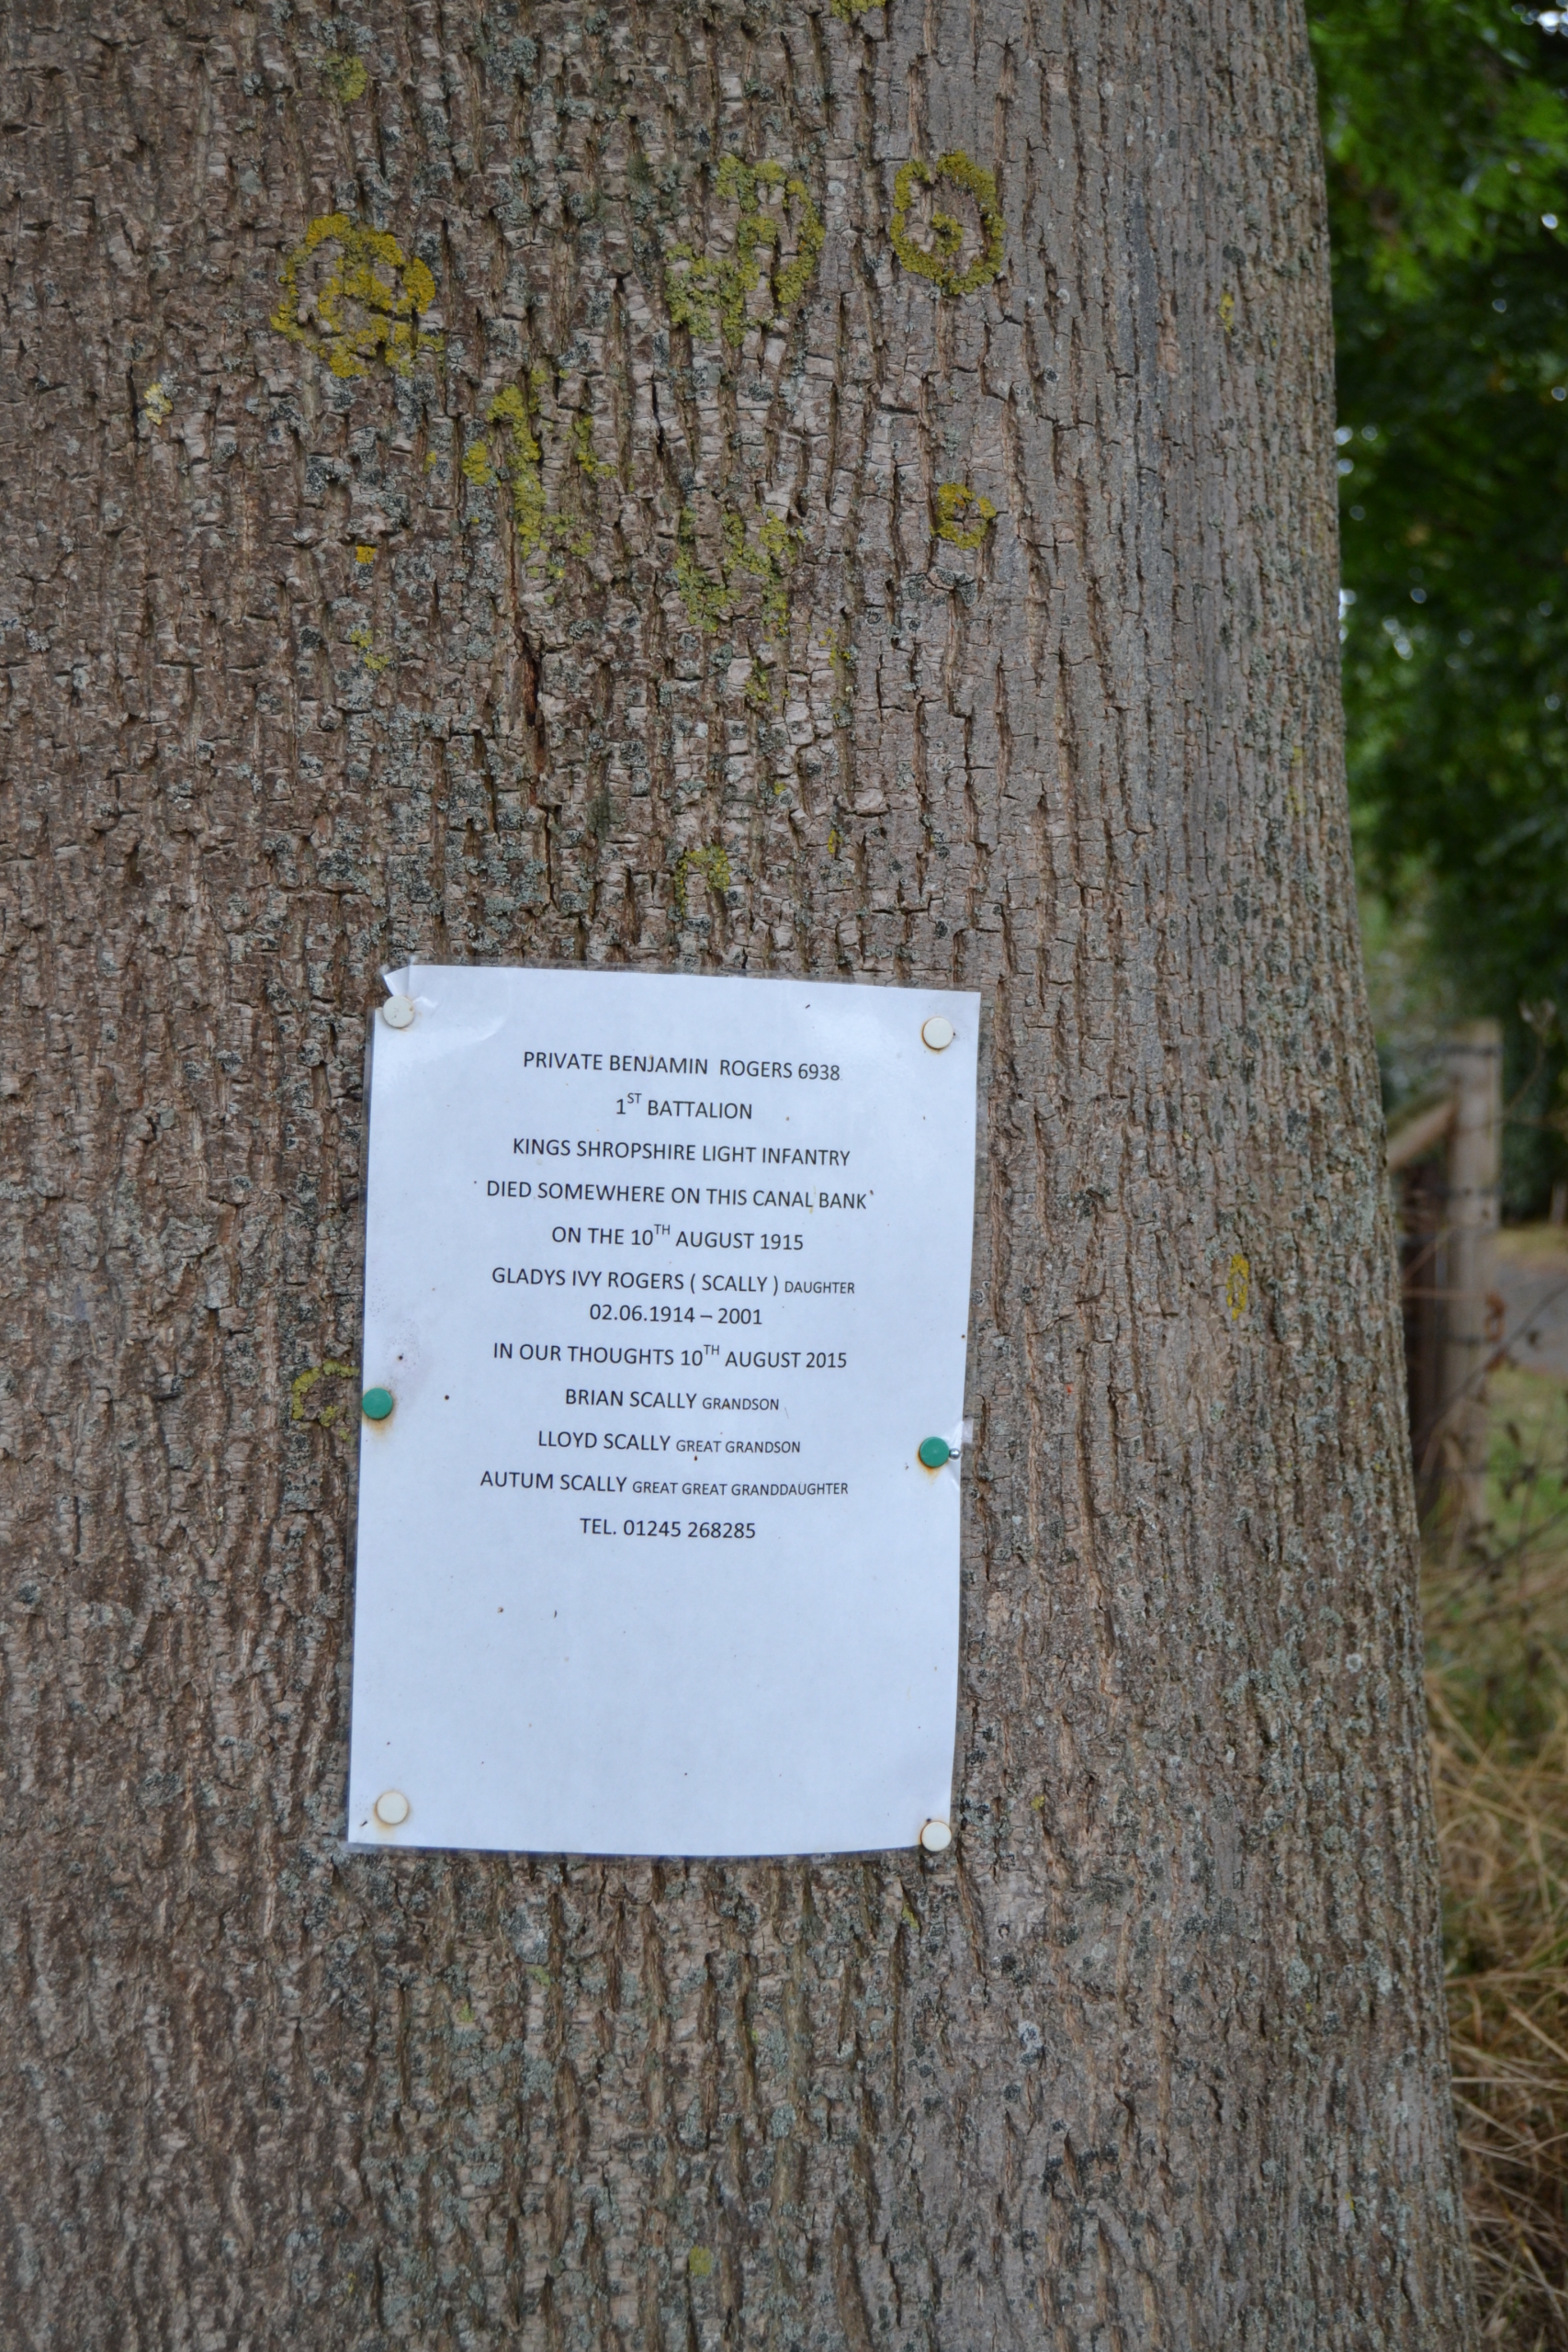 PRIVATE BENJAMIN ROGERS 6938
1ST BATTALION
KINGS SHROPSHIRE LIGHT INFANTRY
DIED SOMEWHERE ON THIS CANAL BANK
ON THE 10TH AUGUST 1915
GLADYS IVY ROGERS ( SCALLY ) DAUGHTER
02.06.1914 – 2001
IN OUR THOUGHTS 10TH AUGUST 2015
BRIAN SCALLY GRANDSON
LLOYD SCALLY GREAT GRANDSON
AUTUM SCALLY GREAT GREAT GRANDDAUGHTER
TEL. 01245 268285